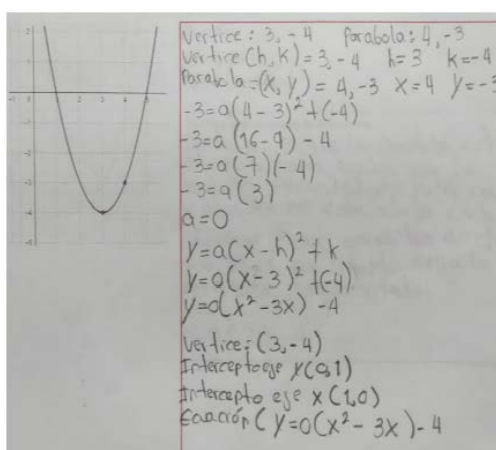 Vertice: 3, -4 Parabola: 4, -3
Vertice (h, k) = 3, -4 h = 3 k = -4
Parabola = (x, y) = 4, -3 x = 4 y = -3
-3 = a(4 - 3)² + (-4)
-3 = a(16 - 9) - 4
-3 = a(7)(-4)
-3 = a(3)
a = 0
y = a(x - h)² + k
y = 0(x - 3)² + (-4)
y = 0(x² - 3x) - 4
Vertice: (3, -4)
Intercepto eje y(0, 1)
Intercepto eje x(1, 0)
Ecuación (y = 0(x² - 3x) - 4